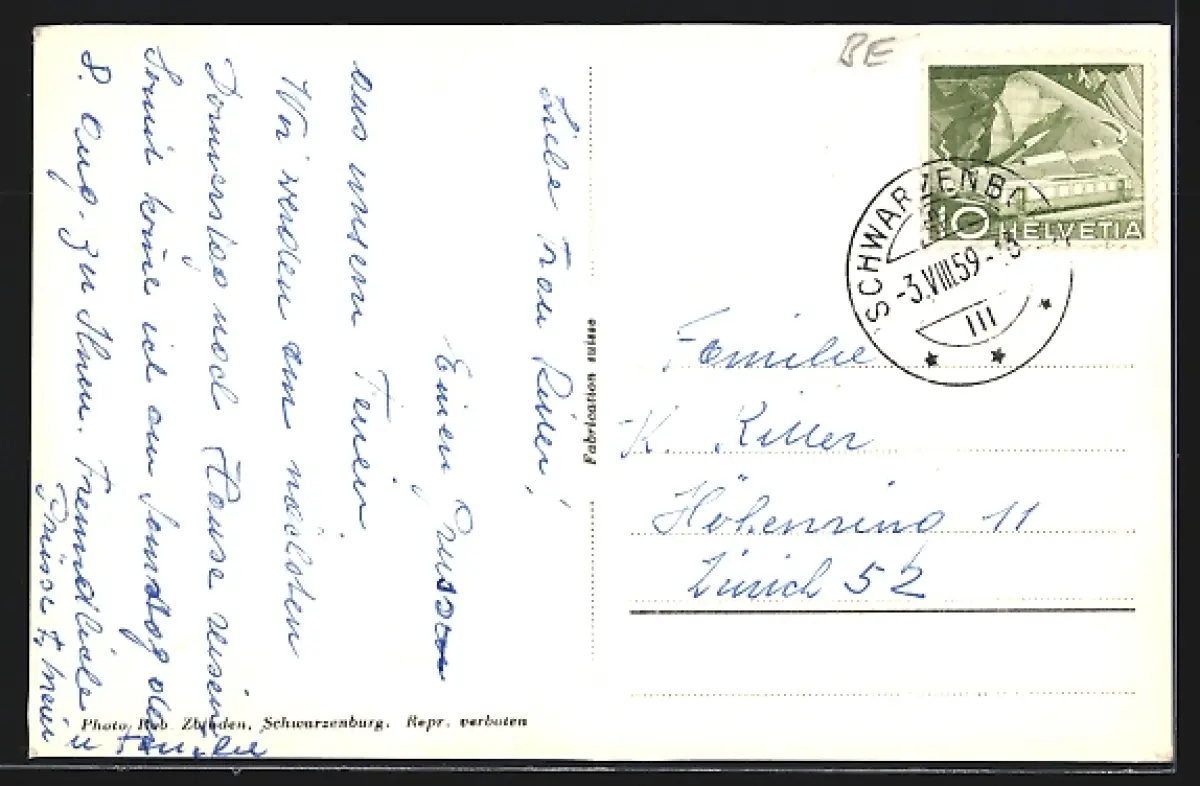 Liebe Frau Ritter!
Einen Gruss
aus unsern Ferien
Wir werden am nächsten
Donnerstag nach Hause reisen
Somit komme ich am Sonntag den
8. Aug. zu Ihnen. Freundliche
Grüsse
u Familie
Photo Rob. Zbinden, Schwarzenburg. Repr. verboten
Fabrication suisse
BE
10 HELVETIA
SCHWARZENB
-3.VIII.59-13
III
Familie
K. Ritter
Höhenring 11
Zürich 52